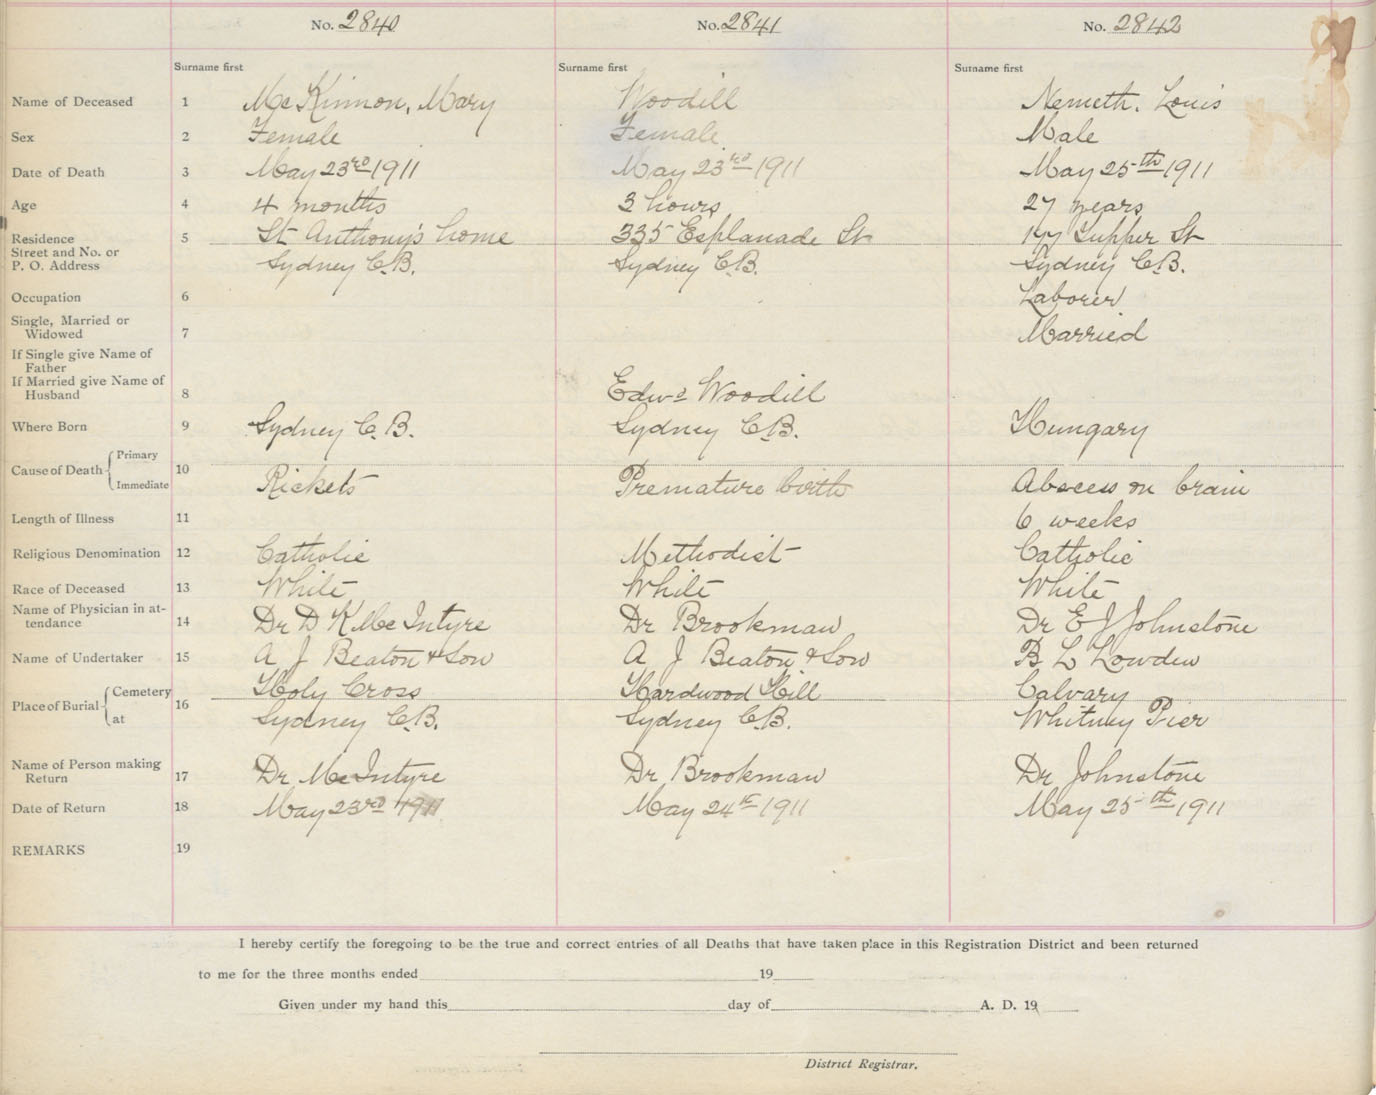 No. 2840 No. 2841 No. 2842
Surname first Surname first Surname first
Name of Deceased 1 McKinnon, Mary Woodill Nemeth. Louis
Sex 2 Female Female. Male
Date of Death 3 May 23rd 1911 May 23rd 1911 May 25th 1911
Age 4 4 months 3 hours 27 years
Residence 5 St Anthony's home 335 Esplanade St Tupper St
Street and No. or
P. O. Address Sydney C.B. Sydney C.B. Sydney C.B.
Occupation 6 Laborer
Single, Married or
Widowed 7 Married
If Single give Name of
Father
If Married give Name of
Husband 8 Edwd Woodill
Where Born 9 Sydney C.B. Sydney C.B. Hungary
Cause of Death Primary
10
Immediate Rickets Premature birth Abscess on brain
Length of Illness 11 6 weeks
Religious Denomination 12 Catholic Methodist Catholic
Race of Deceased 13 White White White
Name of Physician in at-
tendance 14 Dr D K McIntyre Dr Brookman Dr E J Johnstone
Name of Undertaker 15 A J Beaton & Son A J Beaton & Son B L Lowden
Place of Burial Cemetery 16 Holy Cross Hardwood Hill Calvary
at Sydney C.B. Sydney C.B. Whitney Pier
Name of Person making
Return 17 Dr McIntyre Dr Brookman Dr Johnstone
Date of Return 18 May 23rd 1911 May 24th 1911 May 25th 1911
REMARKS 19
I hereby certify the foregoing to be the true and correct entries of all Deaths that have taken place in this Registration District and been returned
to me for the three months ended 19
Given under my hand this day of A. D. 19
District Registrar.